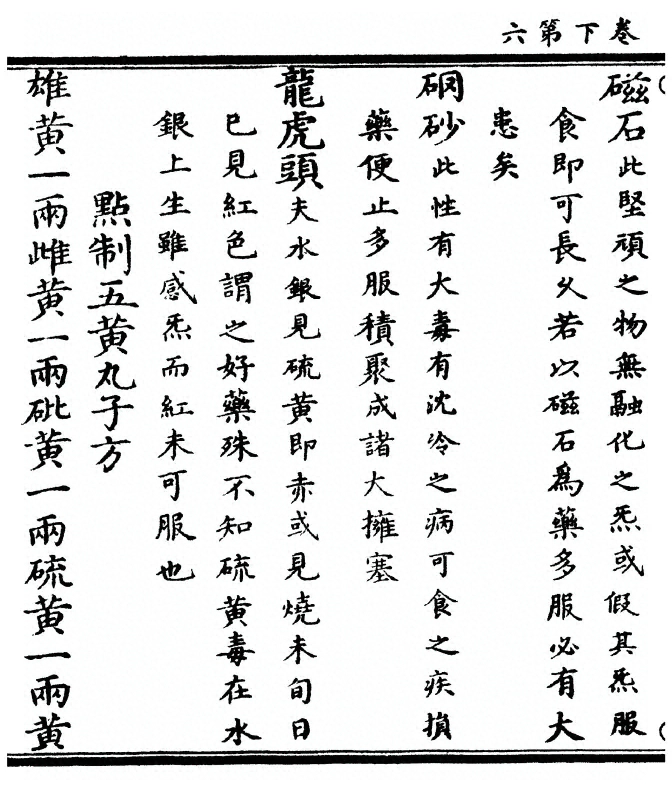 卷下第六
磁石此堅頑之物無融化之炁或假其炁服
食即可長久若以磁石爲藥多服必有大
患矣
硇砂此性有大毒有沈冷之病可食之疾損
藥便止多服積聚成諸大擁塞
龍虎頭夫水銀見硫黃即赤或見燒未旬日
已見紅色謂之好藥殊不知硫黃毒在水
銀上生雖感炁而紅未可服也
點制五黃丸子方
雄黃一兩雌黃一兩砒黃一兩硫黃一兩黃